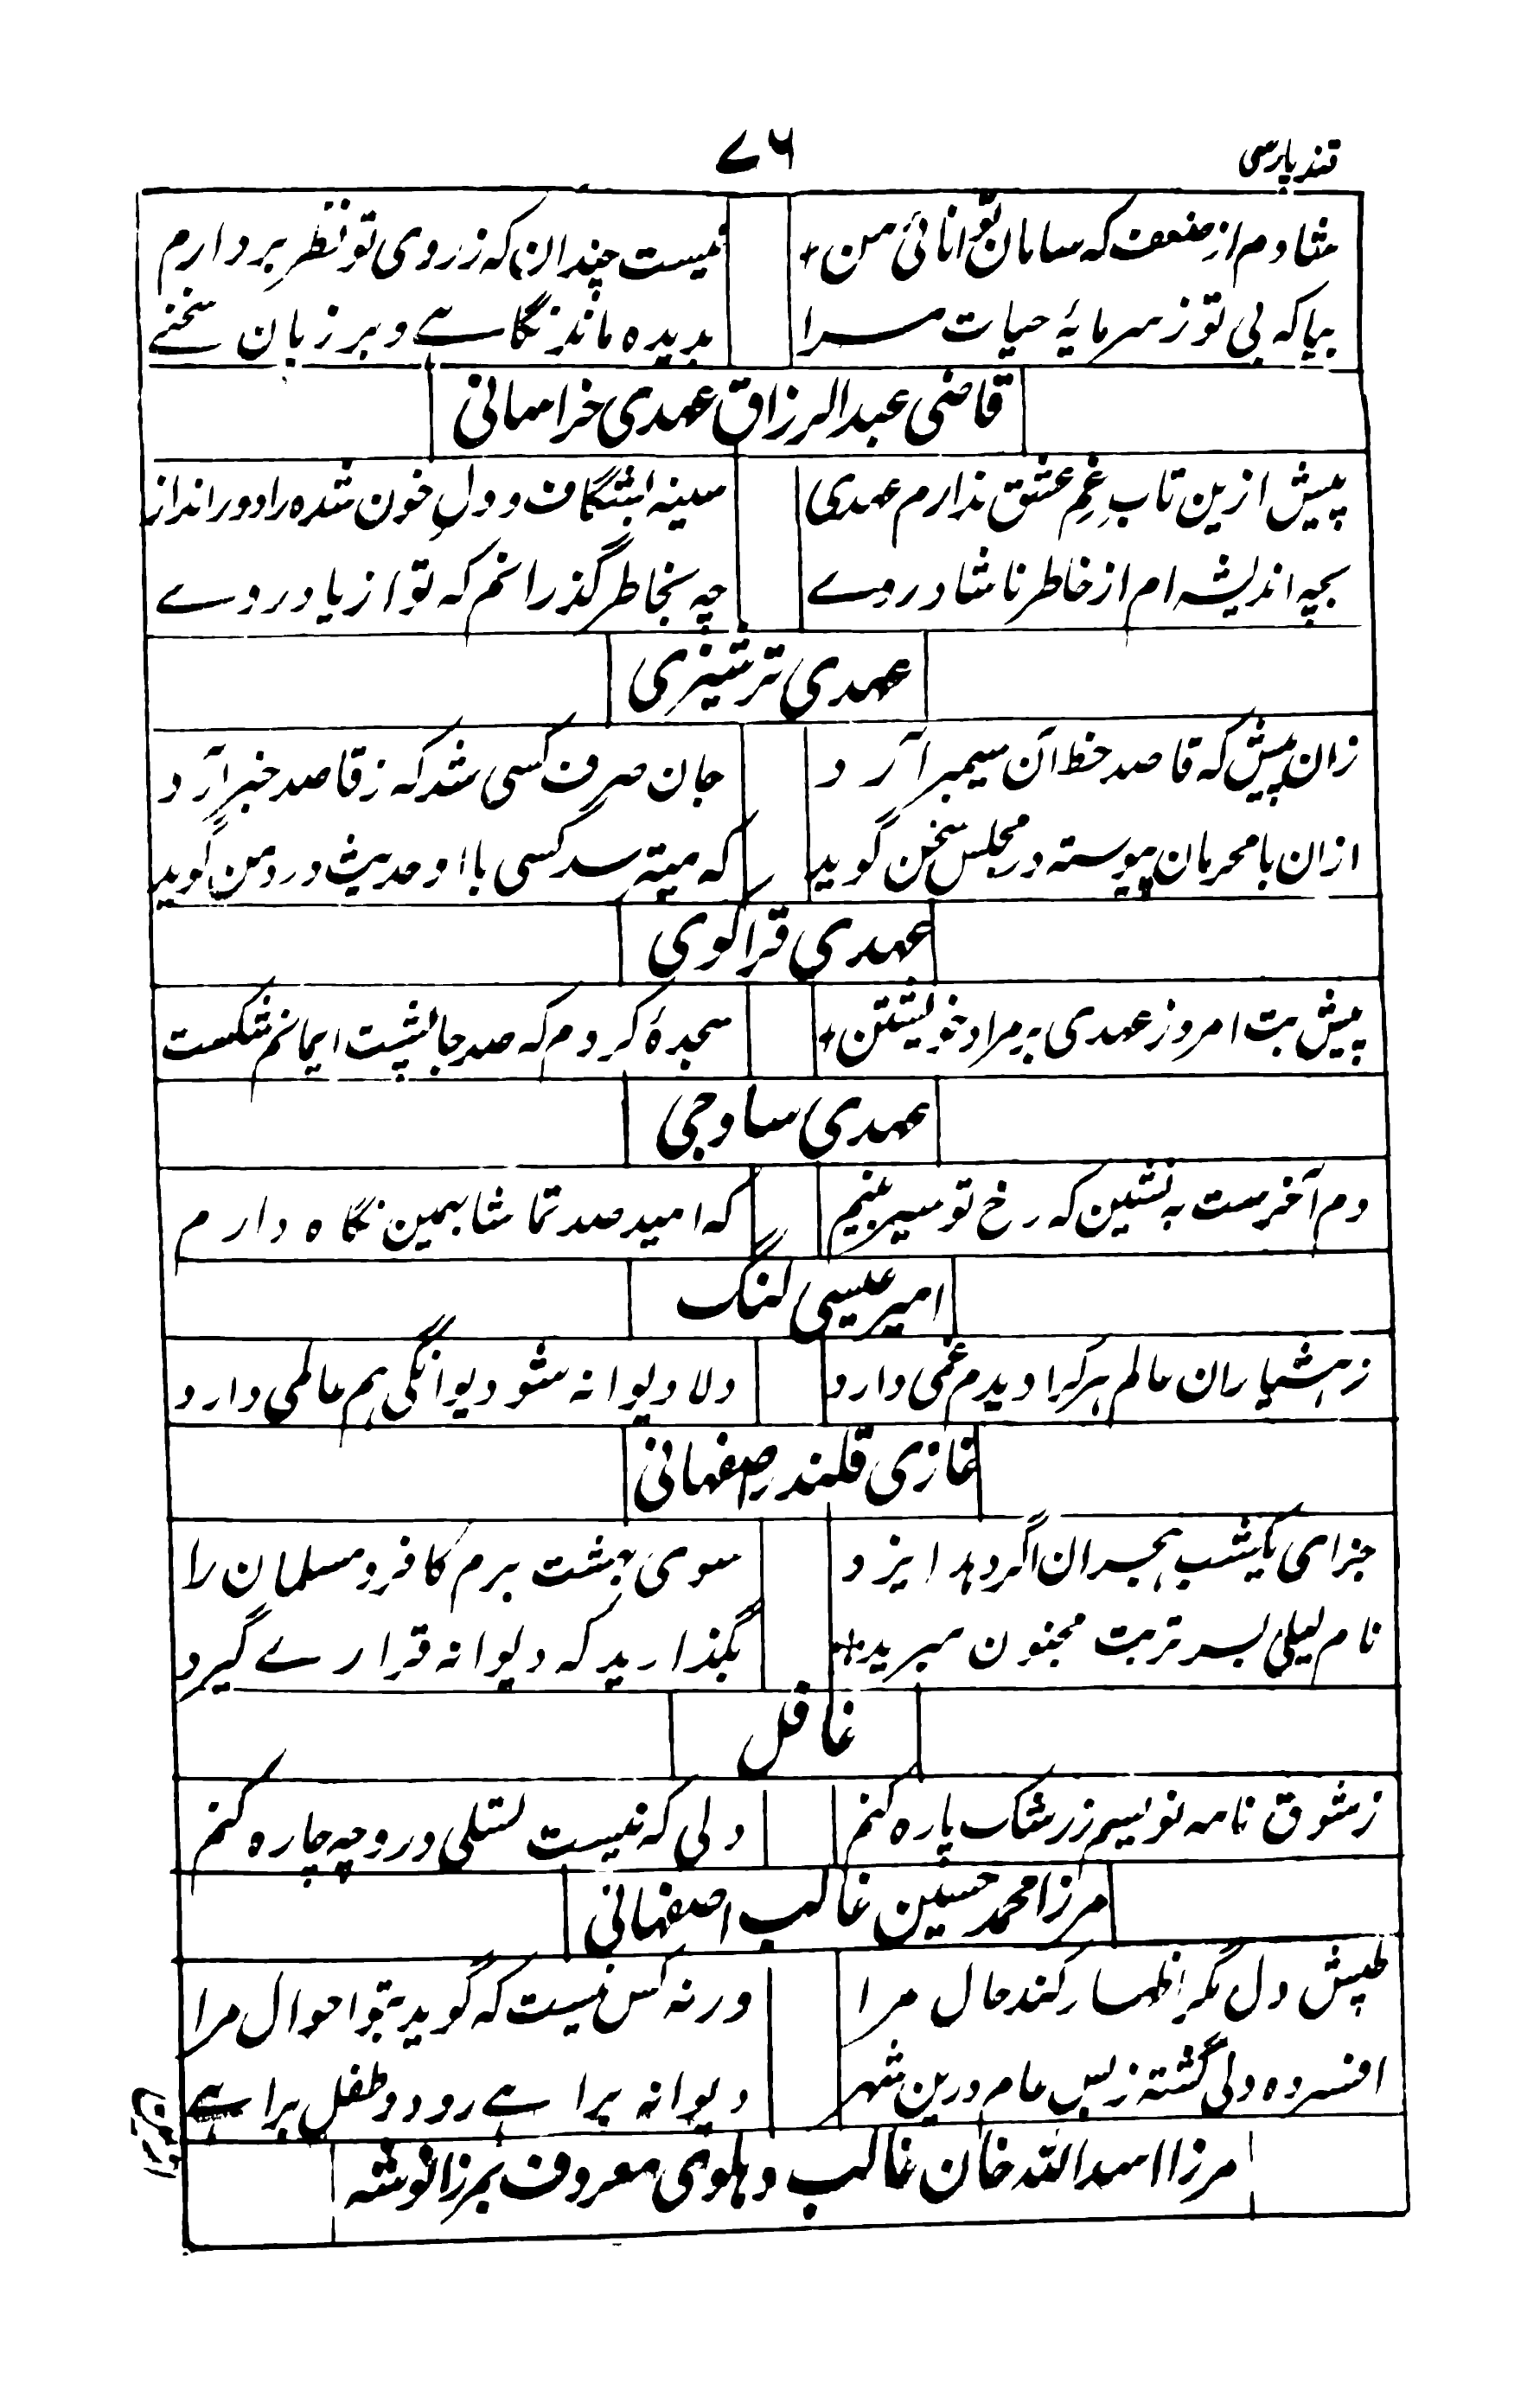 قند پارسی
۷۶
شادم از ضعف که سامان توانائی من
نیست چندان که ز روی تو نظر بردارم
بیا که بی تو ز سرمایۂ حیات مرا
بدیده مانده نگاہے و بر زبان سخنے
قاضی عبدالرزاق عهدی خراسانی
پیش ازین تابِ غمِ عشق ندارم عهدی
سینه بشگاف و دلِ خون شده را دور انداز
بچه اندیشه ام از خاطر ناشاد روے
چه بخاطر گذرانم که تو از یاد روے
عهدی ترشیزی
زان پیش که قاصد خط آن سیمبر آرد
جان صرف کسی شد که ز قاصد خبر آرد
ازان با محرمان پیوسته در مجلس سخن گوید
که میترسد کسی با او حدیث درد من گوید
عهدی قراکوی
پیش بت امروز عهدی بر مراد خویشتن
سجدۂ کردم که صد جا پشت ایمانم شکست
عهدی ساوجی
دم آخرست بنشین که رخ تو سیر بینم
که امید صد تماشا بهمین نگاه دارم
امیر عیسی لنگ
ز هشیاران عالم هر کرا دیدم غمی دارد
دلا دیوانه شو دیوانگی هم عالمی دارد
غازی قلندر صفهانی
جزای یکشب هجران اگر دهد ایزد
سوی بهشت برم کافر و مسلمان را
نام لیلی بسر تربت مجنون مبرید
بگذارید که دیوانه قرارے گیرد
غافل
ز شوق نامه نویسم ز رشک پاره کنم
دلی که نیست تسلی درو چه چاره کنم
مرزا محمد حسین غالب اصفهانی
طپش دل مگر اظهار کند حال مرا
ورنه کس نیست که گوید بتو احوال مرا
افسرده دلی گشته ز بس عام درین شهر
دیوانه براہے رود و طفل براہے
مرزا اسدالله خان غالب دهلوی معروف بمرزا نوشه